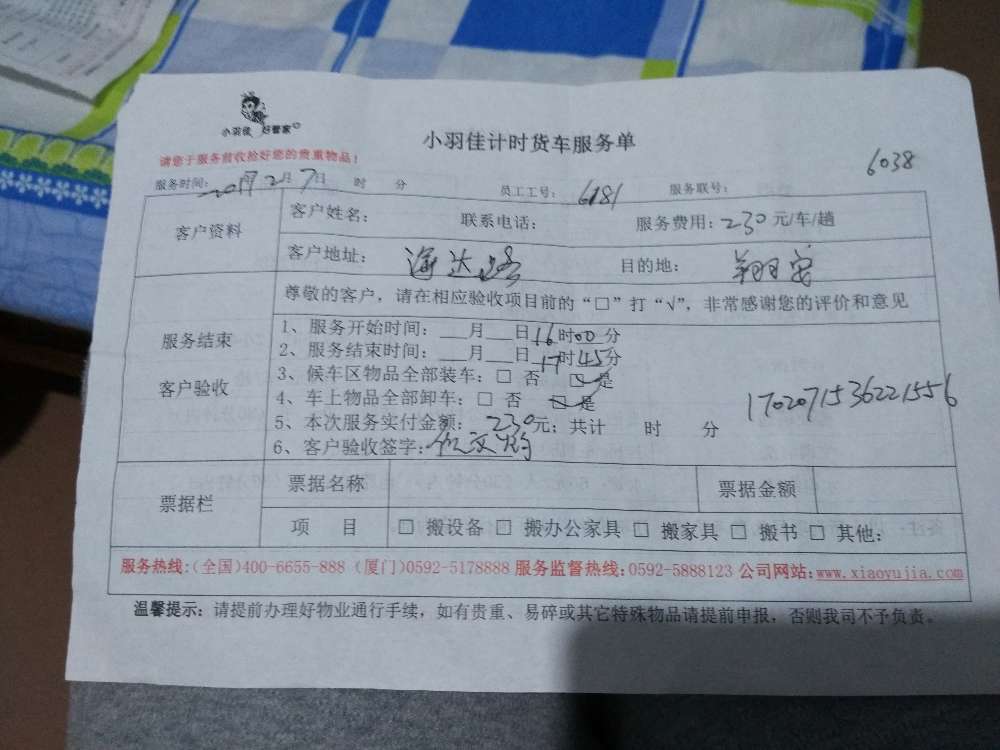 小羽佳 好管家
小羽佳计时货车服务单
请您于服务前收拾好您的贵重物品！
6038
服务时间：2017年2月7日 时 分 员工工号：6181 服务联号：
客户资料
客户姓名： 联系电话： 服务费用：230元/车/趟
客户地址：海达路 目的地：翔安
尊敬的客户，请在相应验收项目前的“□”打“√”，非常感谢您的评价和意见
服务结束
客户验收
1、服务开始时间：___月___日16时00分
2、服务结束时间：___月___日17时45分
3、候车区物品全部装车：□ 否 □ 是
4、车上物品全部卸车：□ 否 □ 是
5、本次服务实付金额：230元；共计 时 分
1702071536221556
6、客户验收签字：
票据栏
票据名称 票据金额
项 目 □ 搬设备 □ 搬办公家具 □ 搬家具 □ 搬书 □ 其他：
服务热线：（全国）400-6655-888（厦门）0592-5178888 服务监督热线：0592-5888123 公司网站：www.xiaoyujia.com
温馨提示：请提前办理好物业通行手续，如有贵重、易碎或其它特殊物品请提前申报，否则我司不予负责。